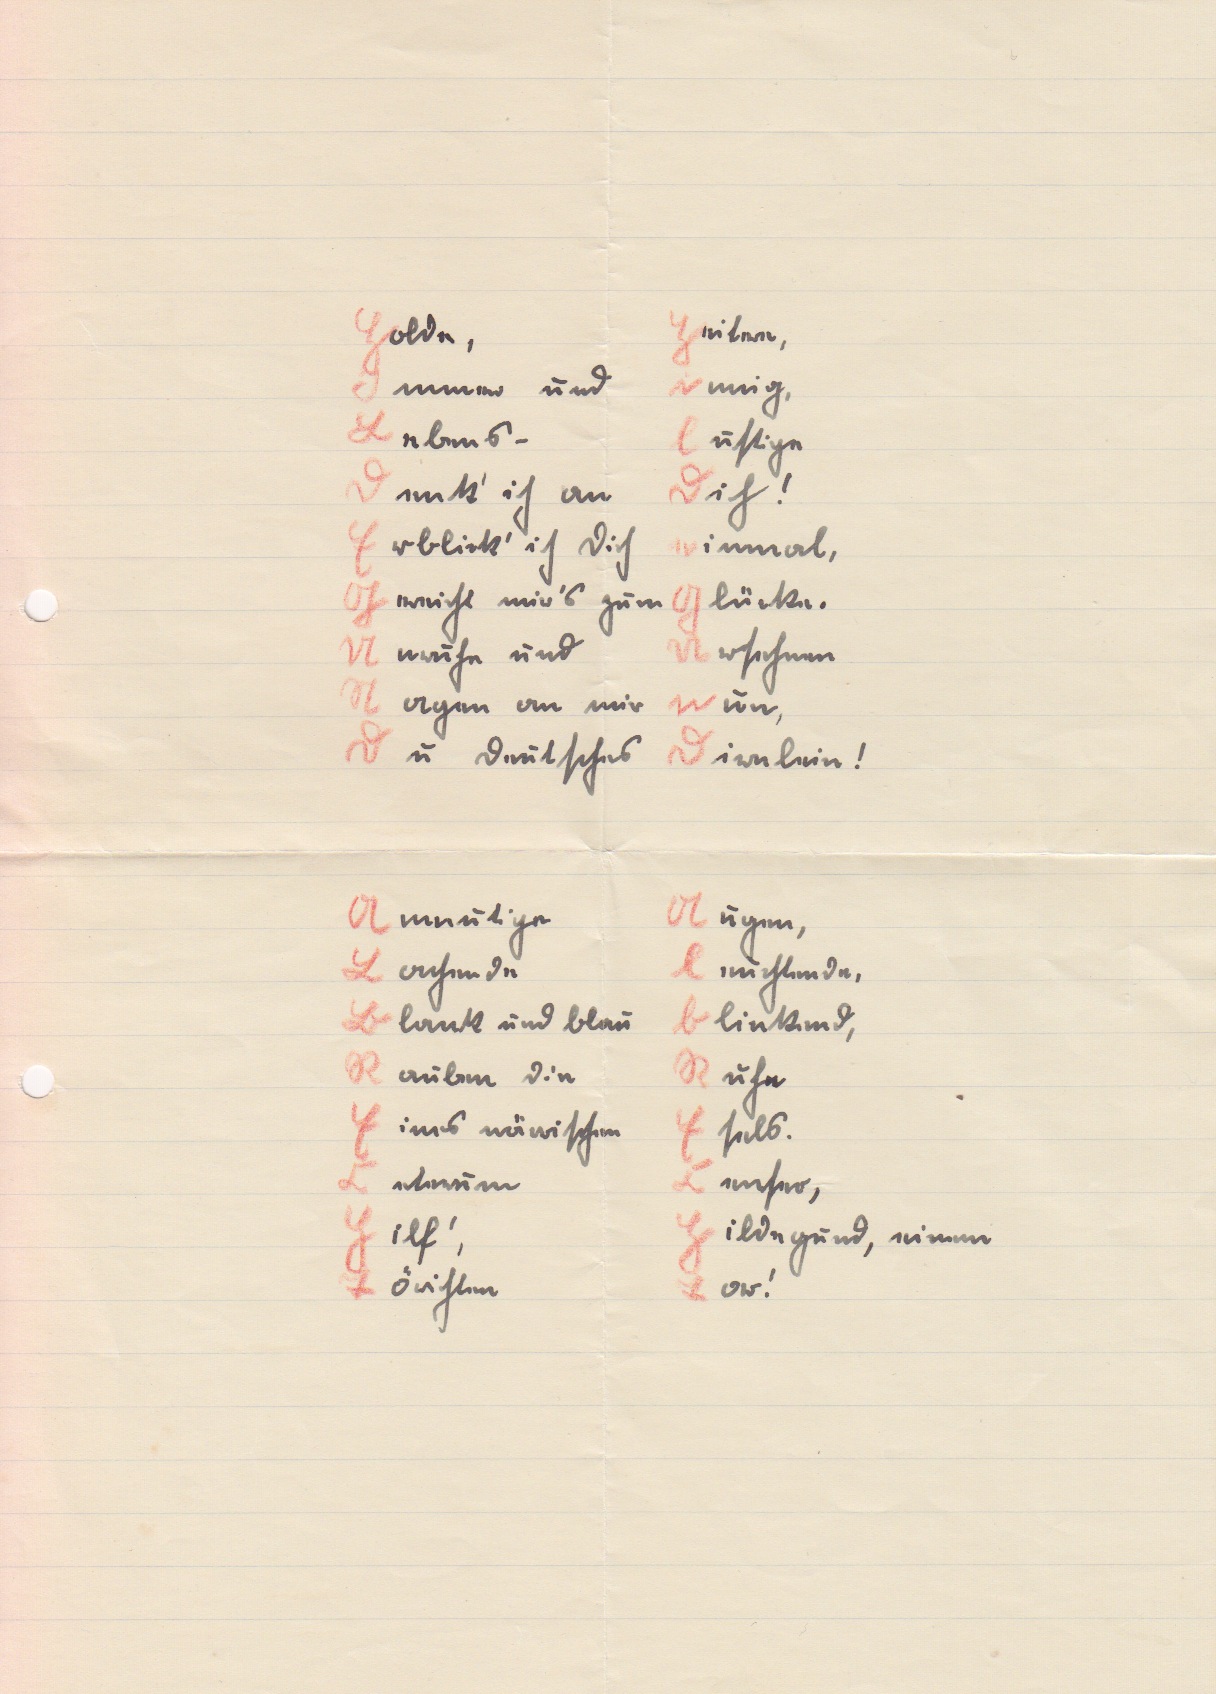 Holde, Heitere,
Immer und innig,
Lebens- lustige
Denk' ich an Dich!
Erblick' ich Dich einmal,
Gereicht mir's zum Glücke.
Unruhe und Ursehnen
Nagen an mir nun,
Du deutsches Dirnlein!
Anmutige Augen,
Lachende leuchtende,
Blank und blau blinkend,
Rauben die Ruhe
Eines närrischen Esels.
Ceterum Censeo,
Hilf', Hildegund, einem
Törichten Tor!